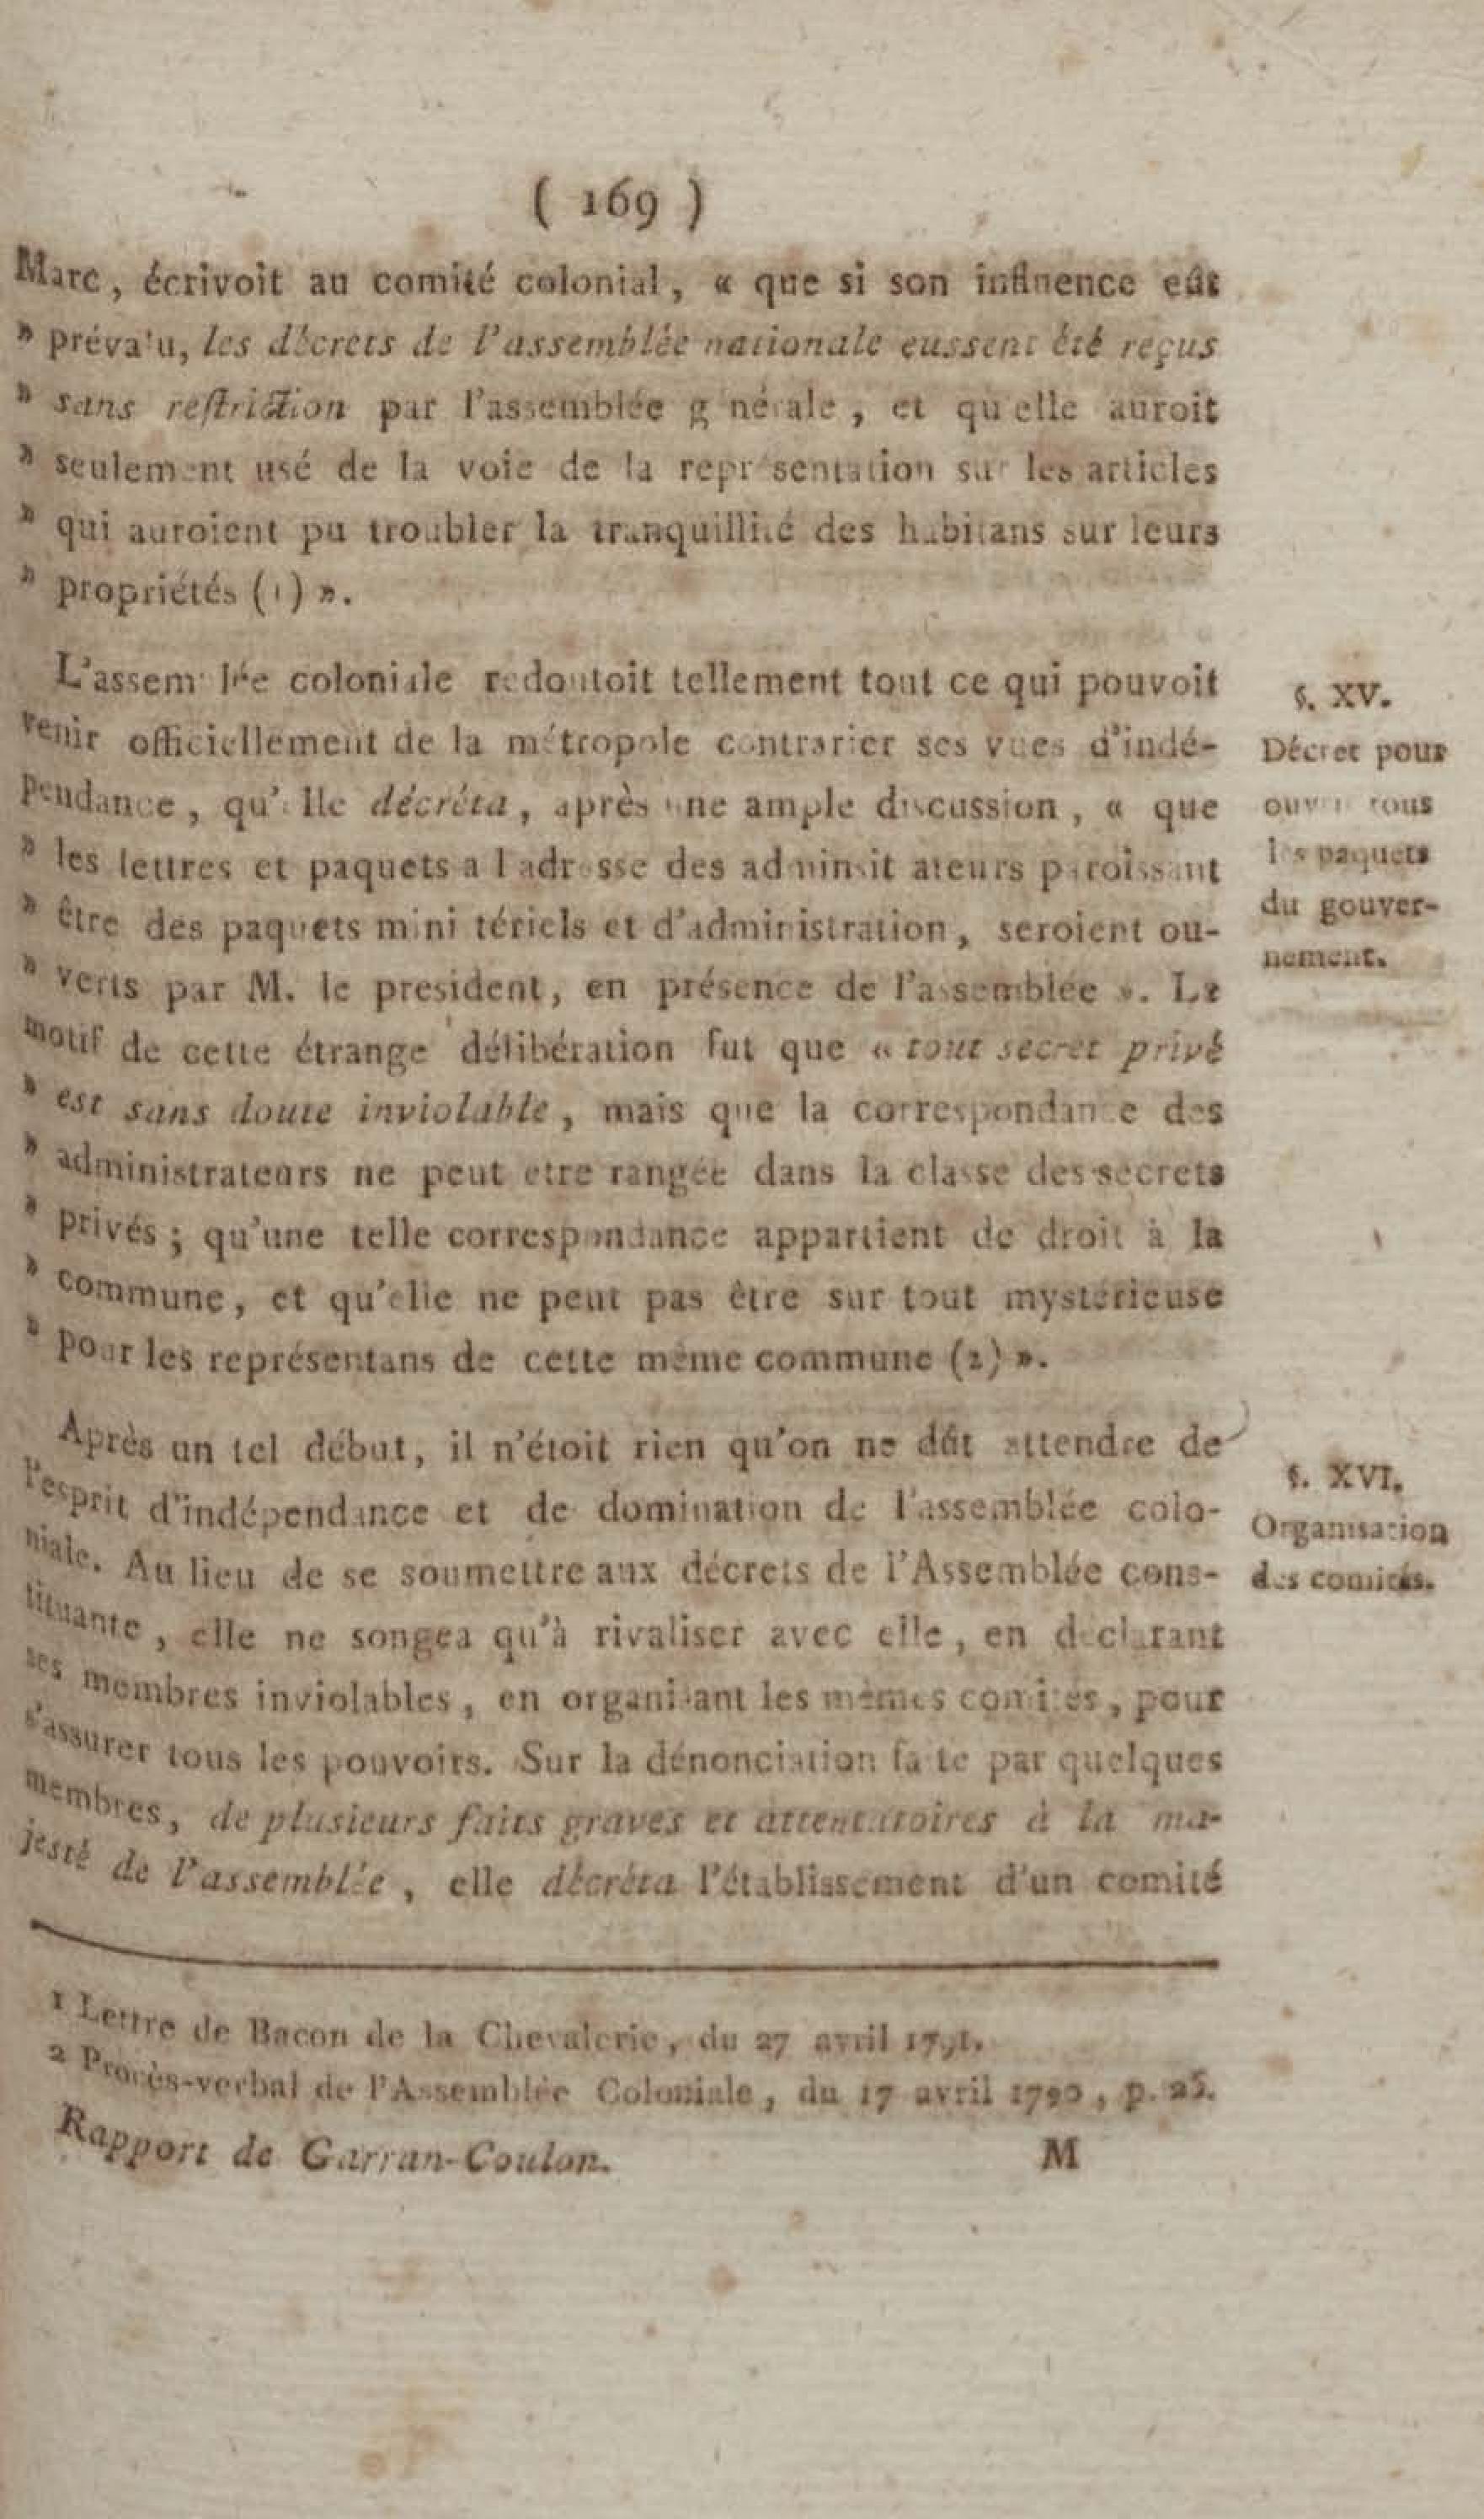 ( 169 )
Marc, écrivoit au comité colonial, « que si son influence eût
» prévalu, les décrets de l'assemblée nationale eussent été reçus
» sans restriction par l'assemblée générale, et qu'elle auroit
» seulement usé de la voie de la représentation sur les articles
» qui auroient pu troubler la tranquillité des habitans sur leurs
» propriétés (1) ».
L'assemblée coloniale redoutoit tellement tout ce qui pouvoit
venir officiellement de la métropole contrarier ses vues d'indé-
pendance, qu'elle décréta, après une ample discussion, « que
» les lettres et paquets à l'adresse des administrateurs paroissant
» être des paquets ministériels et d'administration, seroient ou-
» verts par M. le président, en présence de l'assemblée ». Le
motif de cette étrange délibération fut que « tout secret privé
» est sans doute inviolable, mais que la correspondance des
» administrateurs ne peut être rangée dans la classe des secrets
» privés ; qu'une telle correspondance appartient de droit à la
» commune, et qu'elle ne peut pas être sur tout mystérieuse
» pour les représentans de cette même commune (2) ».
§. XV.
Décret pour
ouvrir tous
les paquets
du gouver-
nement.
Après un tel début, il n'étoit rien qu'on ne dût attendre de
l'esprit d'indépendance et de domination de l'assemblée colo-
niale. Au lieu de se soumettre aux décrets de l'Assemblée cons-
tituante, elle ne songea qu'à rivaliser avec elle, en déclarant
ses membres inviolables, en organisant les mêmes comités, pour
s'assurer tous les pouvoirs. Sur la dénonciation faite par quelques
membres, de plusieurs faits graves et attentatoires à la ma-
jesté de l'assemblée, elle décréta l'établissement d'un comité
§. XVI.
Organisation
des comités.
1 Lettre de Bacon de la Chevalerie, du 27 avril 1791.
2 Procès-verbal de l'Assemblée Coloniale, du 17 avril 1790, p. 25.
Rapport de Garran-Coulon. M